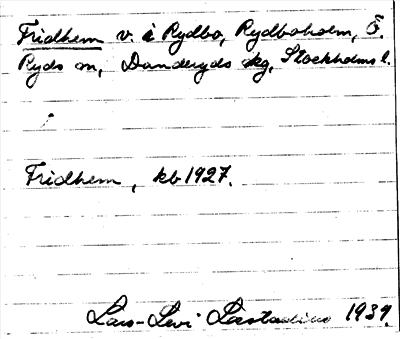 Fridhem v. i Rydbo, Rydboholm, Ö.
Ryds sn, Danderyds skg, Stockholms l.
Fridhem, kb 1927.
Lars-Levi Læstadius 1939.